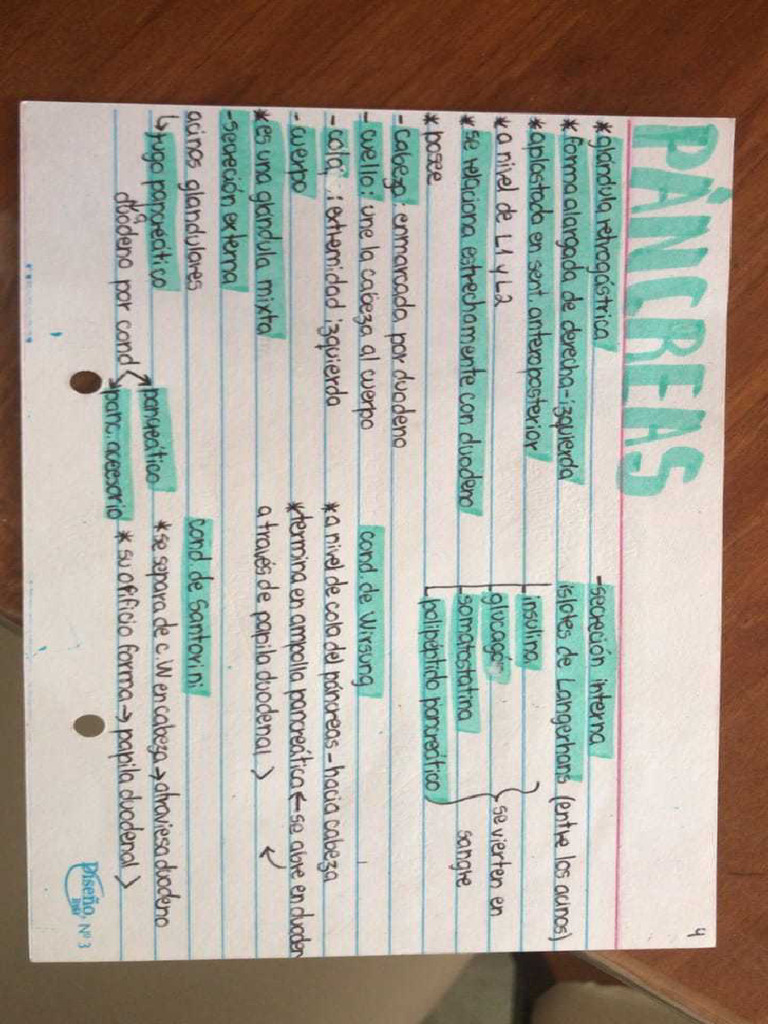 4
PÁNCREAS
*glándula retrogástrica
*forma alargada de derecha-izquierda
*aplastada en sent. anteroposterior
*a nivel de L1 y L2
*se relaciona estrechamente con duodeno
*posee
-cabeza: enmarcada por duodeno
-cuello: une la cabeza al cuerpo
-cola: extremidad izquierda
-cuerpo
*es una glándula mixta
-secreción externa
acinos glandulares
↳jugo pancreático
↳a
duodeno por cond
pancreático
panc. accesorio
-secreción interna
islotes de Langerhans (entre los acinos)
insulina
glucagón
somatostatina
polipéptido pancreático
se vierten en
sangre
cond. de Wirsung
*a nivel de cola del páncreas - hacia cabeza
*termina en ampolla pancreática ← se abre en duoden
a través de papila duodenal >
cond. de Santorini
*se separa de c. W en cabeza → atraviesa duodeno
*su orificio forma → papila duodenal >
Diseño, Nº 3